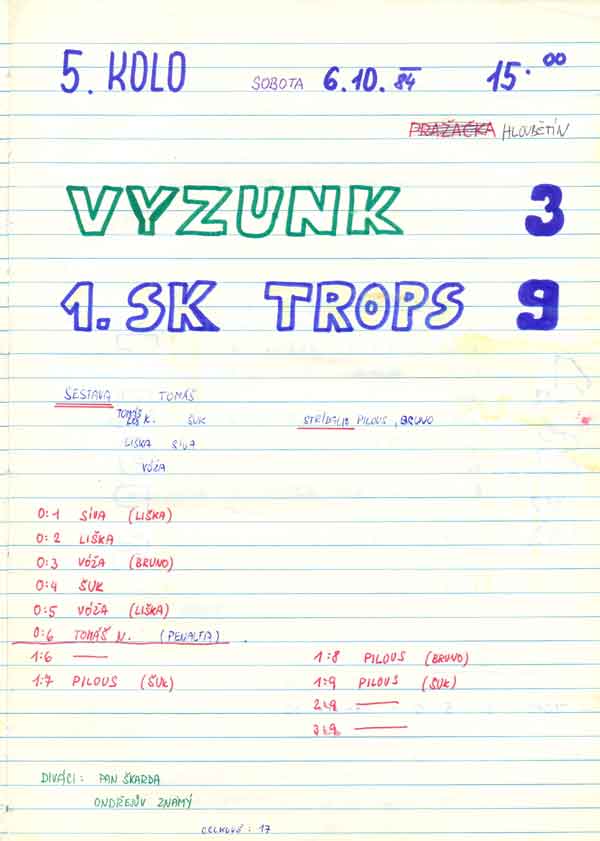 5. KOLO SOBOTA 6.10.84 15.00
PRAŽAČKA HLOUBĚTÍN
VYZUNK 3
1. SK TROPS 9
SESTAVA TOMÁŠ
TOMÁŠ K. ŠUK STŘÍDALI: PILOUS, BRUNO
LIŠKA SÍVA
VÓŽA
0:1 SÍVA (LIŠKA)
0:2 LIŠKA
0:3 VÓŽA (BRUNO)
0:4 ŠUK
0:5 VÓŽA (LIŠKA)
0:6 TOMÁŠ N. (PENALTA)
1:6 —
1:7 PILOUS (ŠUK)
1:8 PILOUS (BRUNO)
1:9 PILOUS (ŠUK)
2:9 —
3:9 —
DIVÁCI: PAN ŠKARDA
ONDŘEJŮV ZNÁMÝ
CELKOVĚ: 17